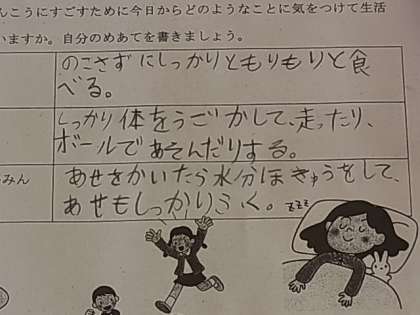 んこうにすごすために今日からどのようなことに気をつけて生活
いますか。自分のめあてを書きましょう。
のこさずにしっかりともりもりと食
べる。
しっかり体をうごかして、走ったり、
ボールであそんだりする。
みん
あせをかいたら水分ほきゅうをして、
あせもしっかりふく。
zzz